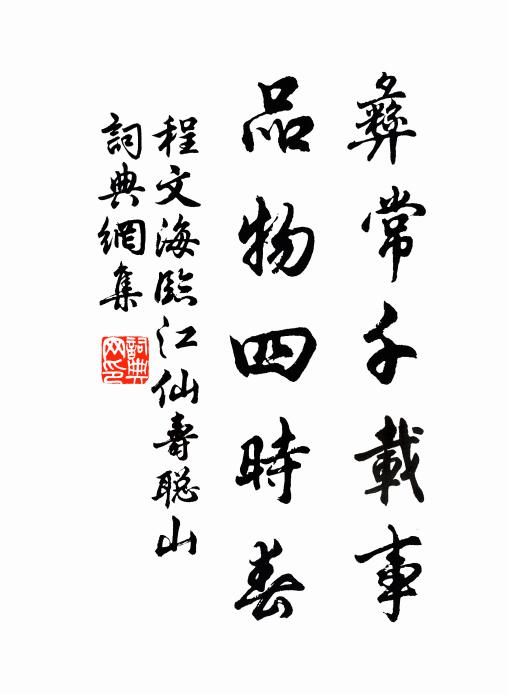 彝常千載事
品物四時春
程文海臨江仙壽聡山
詞典網集
詞典網印